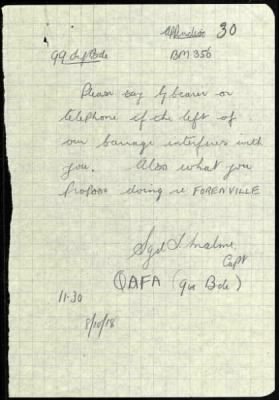 Appendix 30
99 Inf Bde BM 356
Please say by bearer or
telephone if the left of
our barrage interferes with
you. Also what you
propose doing re FORENVILLE
Sgd
Capt
QAFA (99 Bde)
11.30
8/10/18